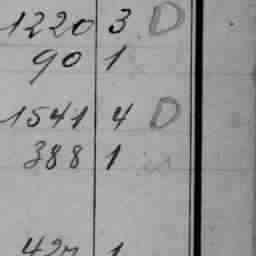 1220 3 D
90 1
1541 4 D
388 1